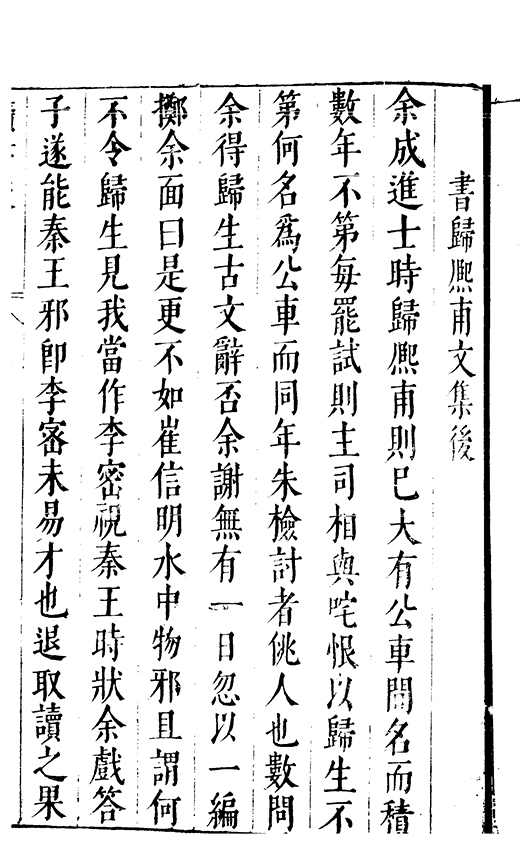 書歸熈甫文集後
余成進士時歸熈甫則巳大有公車間名而積
數年不第每罷試則主司相與咤恨以歸生不
第何名爲公車而同年朱檢討者佻人也數問
余得歸生古文辭否余謝無有一日忽以一編
擲余面曰是更不如崔信明水中物邪且謂何
不令歸生見我當作李密視秦王時狀余戲答
子遂能秦王邪卽李密未易才也退取讀之果